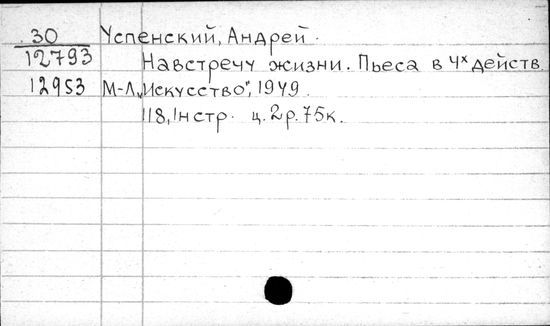 30 Успенский, Андрей.
12793 Навстречу жизни. Пьеса в 4х действ.
12953 М-Л, „Искусство", 1949.
118, 1нстр. ц. 2р. 75к.